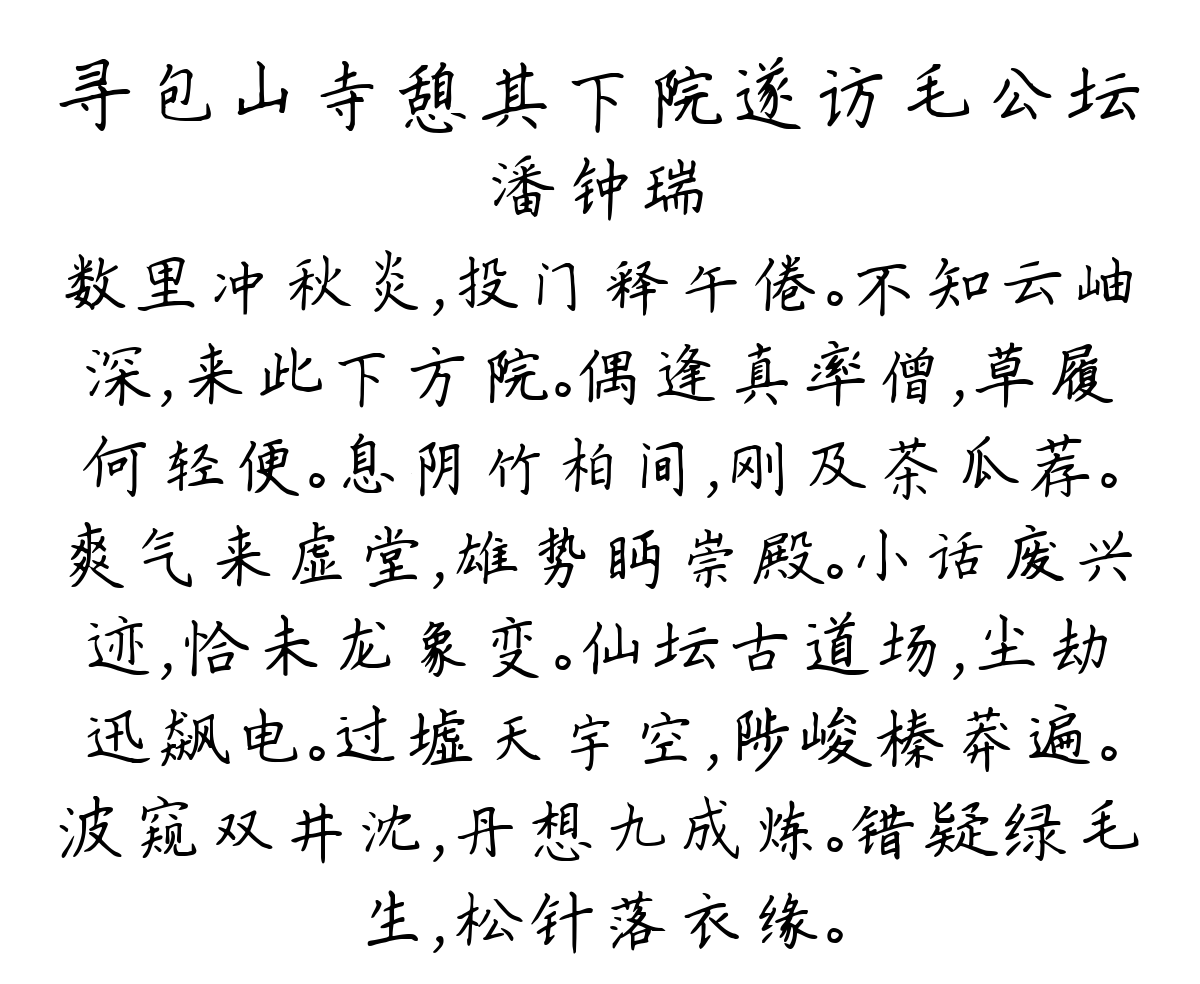 寻包山寺憩其下院遂访毛公坛
潘钟瑞
数里冲秋炎,投门释午倦。不知云岫
深,来此下方院。偶逢真率僧,草履
何轻便。息阴竹柏间,刚及茶瓜荐。
爽气来虚堂,雄势眄崇殿。小话废兴
迹,恰未龙象变。仙坛古道场,尘劫
迅飙电。过墟天宇空,陟峻榛莽遍。
波窥双井沈,丹想九成炼。错疑绿毛
生,松针落衣缘。